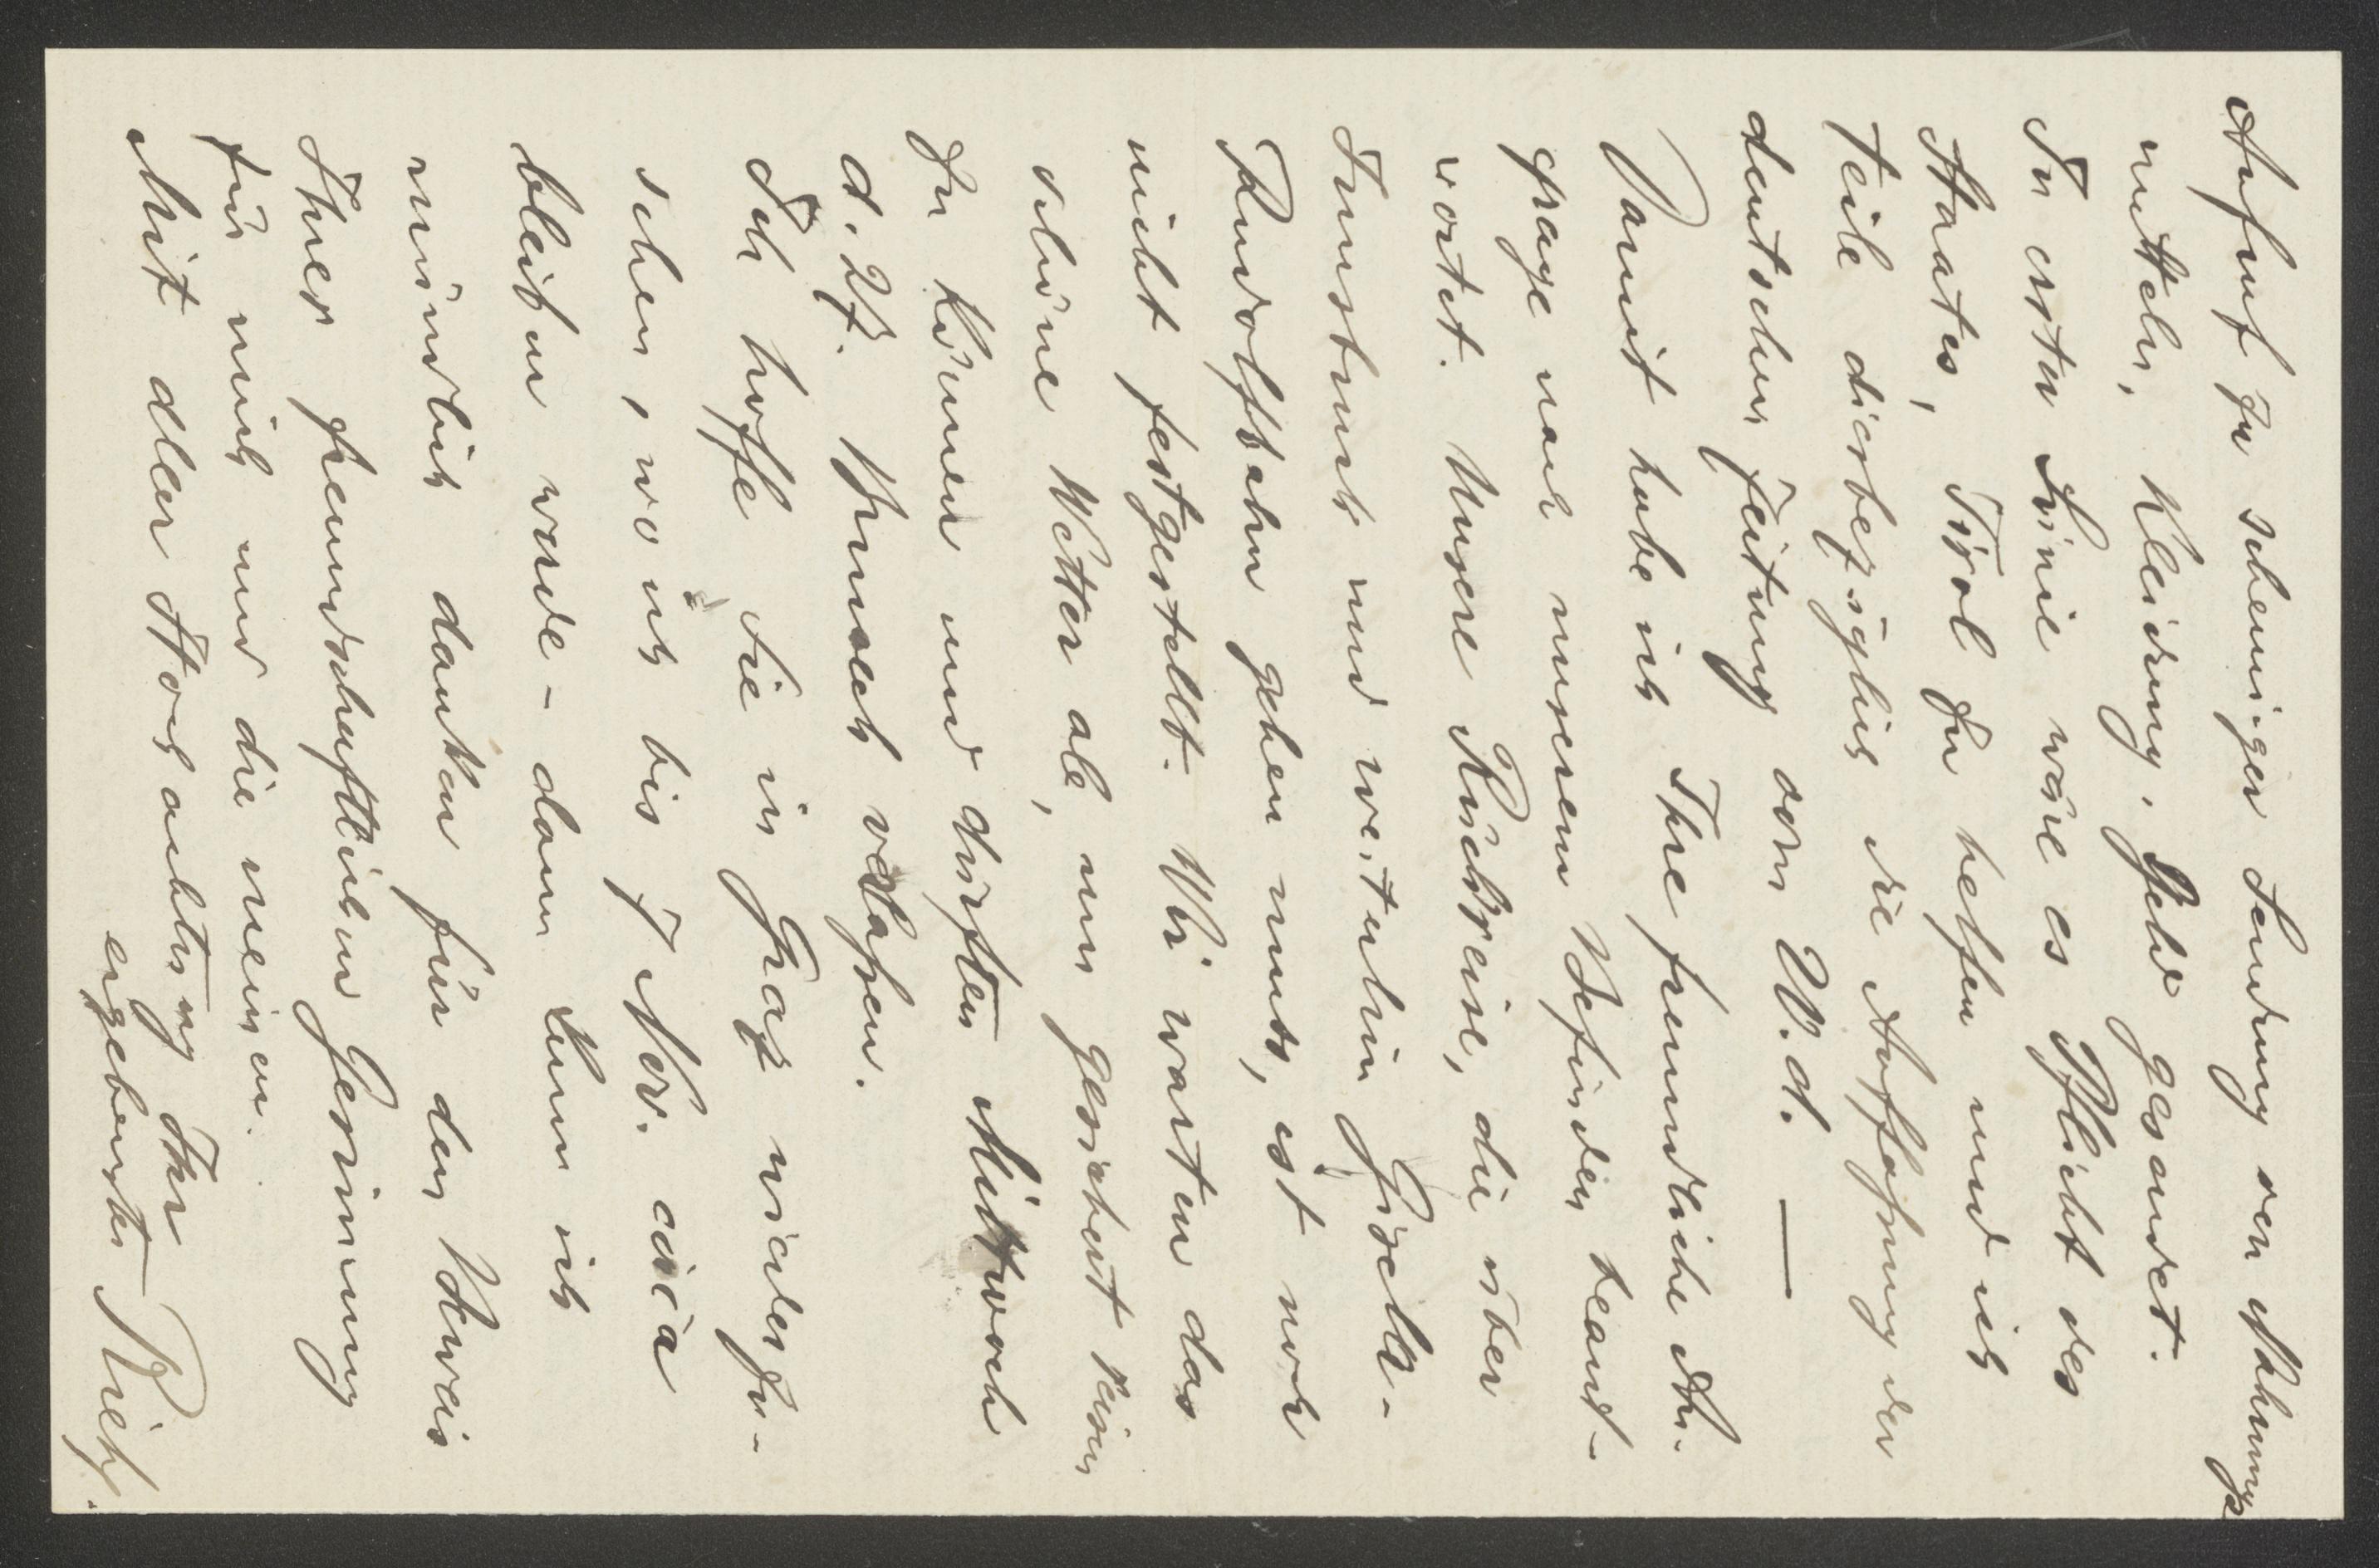 Aufruf zu schleuniger Sendung von Nahrungs
mitteln, Kleidung, Geld gesandt.
In erster Linie wäre es Pflicht des
Staates, Tirol zu helfen und ich
teile diesbezüglich die Auffassung der
deutschen Zeitung vom 20. d. —
Damit habe ich Ihre freundliche An-
frage nach unserem Befinden beant-
wortet. Unsere Rückreise, die über
Innsbruck und weiterhin Gisela-
Rudolfbahn gehen muss, ist noch
nicht festgestellt. Wir warten das
schöne Wetter ab, um gesichert reisen
zu können und dürften Mittwoch
d. 27. Gmunden verlassen.
Ich hoffe Sie in Graz wiederzu-
sehen, wo ich bis 7 Nov. circa
bleiben werde – dann kann ich
mündlich danken für den Beweis
Ihrer freundschaftlichen Gesinnung
für mich und die meinen.
Mit aller Hochachtung Ihr
ergebenster